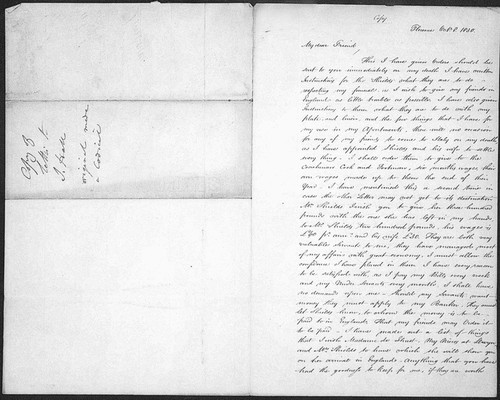 Copy
Florence Oct 8. 1850
My dear Friend,
This I have given Orders should be
sent to you immediately on my death I have written
Instructions for the Shields what they are to do
respecting my funeral as I wish to give my friends in
England as little trouble as possible I have also given
Instructions to them what they are to do with my
plate and linen, and the few things that I have for
my use in my Apartments, there will no occasion
for any of my family to come to Italy on my death
as I have appointed Shields and his wife to settle
every thing. I shall order them to give to the
Cook and Footman, six months wages, their
own wages made up to them the end of their
Year. I have mentioned this a second time in
case the other Letter may not get to its destination
Mrs Shields I wish you to give her three hundred
pounds with the one she has left in my hands
to Mr Shields two hundred pounds, his wages is
£40 pr ann: and his wife £30. They are both very
valuable servants to me, they have managed most
of my affairs with great economy, I must allow the
confidence I have placed in them I have every reason
to be satisfied with, as I pay my Bills every week
and my Under Servants every month I shall have
no demands upon me. Should my Servants want
money they must apply to my Banker. They must
let Shields know, to whom the money is to be
paid to in England, that my friends may Order it
to be paid. I have made out a list of things
that I wish Madame de
and Mrs Shields to have which she will show you
on her arrival in England. Anything that you have
had the goodness to keep for me, if they are worth
Copy of
letter to
I.
original made
a Codicil